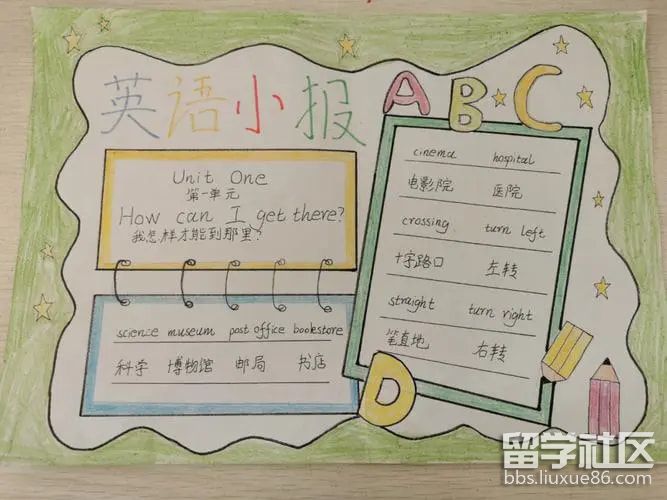 英语小报
Unit One
第一单元
How can I get there?
我怎样才能到那里?
science museum post office bookstore
科学 博物馆 邮局 书店
ABC
cinema hospital
电影院 医院
crossing turn left
十字路口 左转
straight turn right
笔直地 右转
D
留学社区
bbs.liuxue86.com